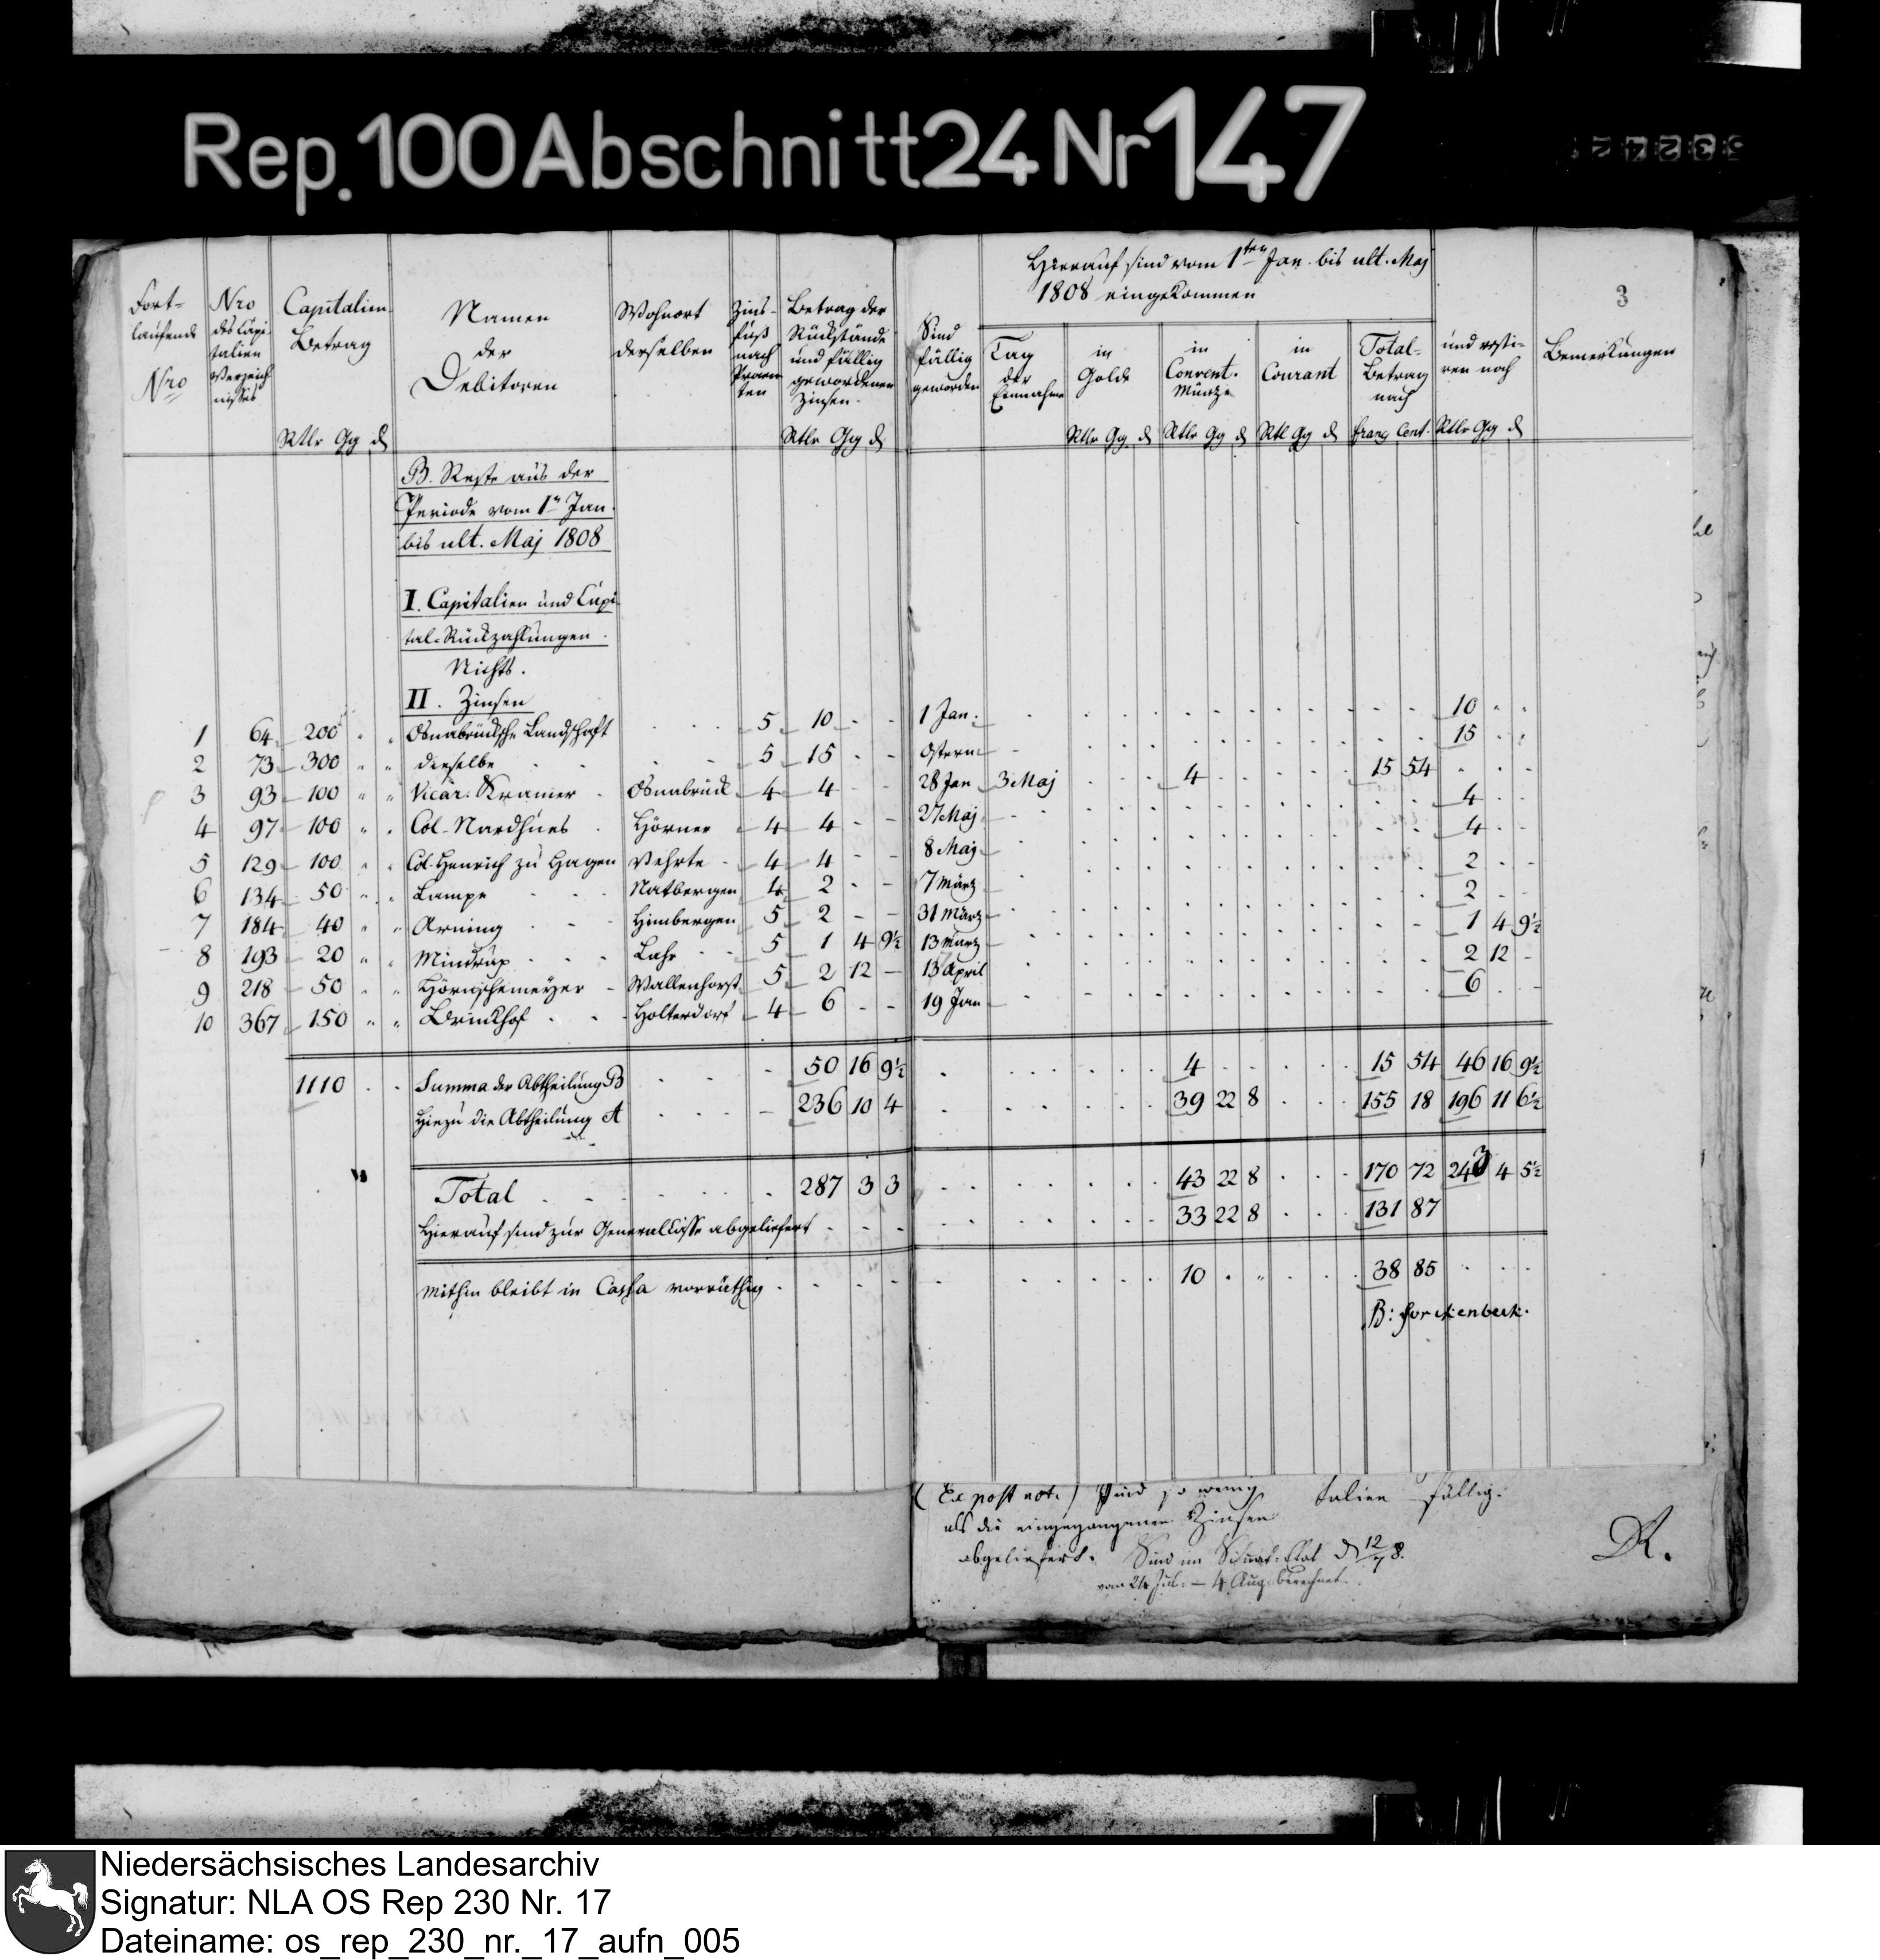 Rep. 100 Abschnitt 24 Nr 147
53242
3
Fort-
laufende
Nro
Nro
des Capi-
talien
Verzeich
nisses
Capitalien
Betrag
Rtlr Gg d
Namen
der
Debitoren
Wohnort
derselben
Zins-
fuß
nach
Procen
ten
Betrag der
Rückstände
und fällig
gewordenen
Zinsen.
Rtlr Gg d
Sind
fällig
geworden
Hierauf sind vom 1ten Jan. bis ult. Maj
1808 eingekommen
Tag
der
Einnahme
in
Golde
Rtlr Gg d
in
Convent.
Münze
Rtlr Gg d
in
Courant
Rtl Gg d
Total-
Betrag
nach
franc Cent.
und resti-
ren noch
Rtlr Gg d
Bemerkungen
B. Reste aus der
Periode vom 1n Jan.
bis ult. Maj 1808
I. Capitalien und Capi
tal-Rückzahlungen.
Nichts.
II. Zinsen
1 64 200 Osnabrücksche Landschaft 5 10 - - 1 Jan. 10
2 73 300 dieselbe 5 15 - - Ostern 15
3 93 100 Vicar. Kramer Osnabrück 4 4 - - 28 Jan 3 Maj 4 15 54
4 97 100 Col. Nardhues Hörner 4 4 - - 27 Maj 4
5 129 100 Col. Henrich zu Hagen Vehrte 4 4 - - 8 Maj 4
6 134 50 Lampe Natbergen 4 2 - - 7 März 2
7 184 40 Arning Himbergen 5 2 - - 31 März 2
8 193 20 Mindrup Lahr 5 1 4 9½ 13 März 1 4 9½
9 218 50 Hörnschemeyer Wallenhorst 5 2 12 - 13 April 2 12 -
10 367 150 Brinkhof Holterdorf 4 6 - - 19 Jan 6
1110 Summa der Abtheilung B 50 16 9½ 4 15 54 46 16 9½
Hiezu die Abtheilung A 236 10 4 39 22 8 155 18 196 11 6½
Total 287 3 3 43 22 8 170 72 243 4 5½
Hierauf sind zur Generalcasse abgeliefert 33 22 8 131 87
Mithin bleibt in Cassa vorräthig 10 38 85
B: Forckenbeck.
(Ex post not.) Sind so wenig talien fällig.
als die eingegangenen Zinsen
abgeliefert. Sind im Situat-Etat d 12/7 8.
vom 24 Jul. - 4 Aug. berechnet.
Niedersächsisches Landesarchiv
Signatur: NLA OS Rep 230 Nr. 17
Dateiname: os_rep_230_nr._17_aufn_005